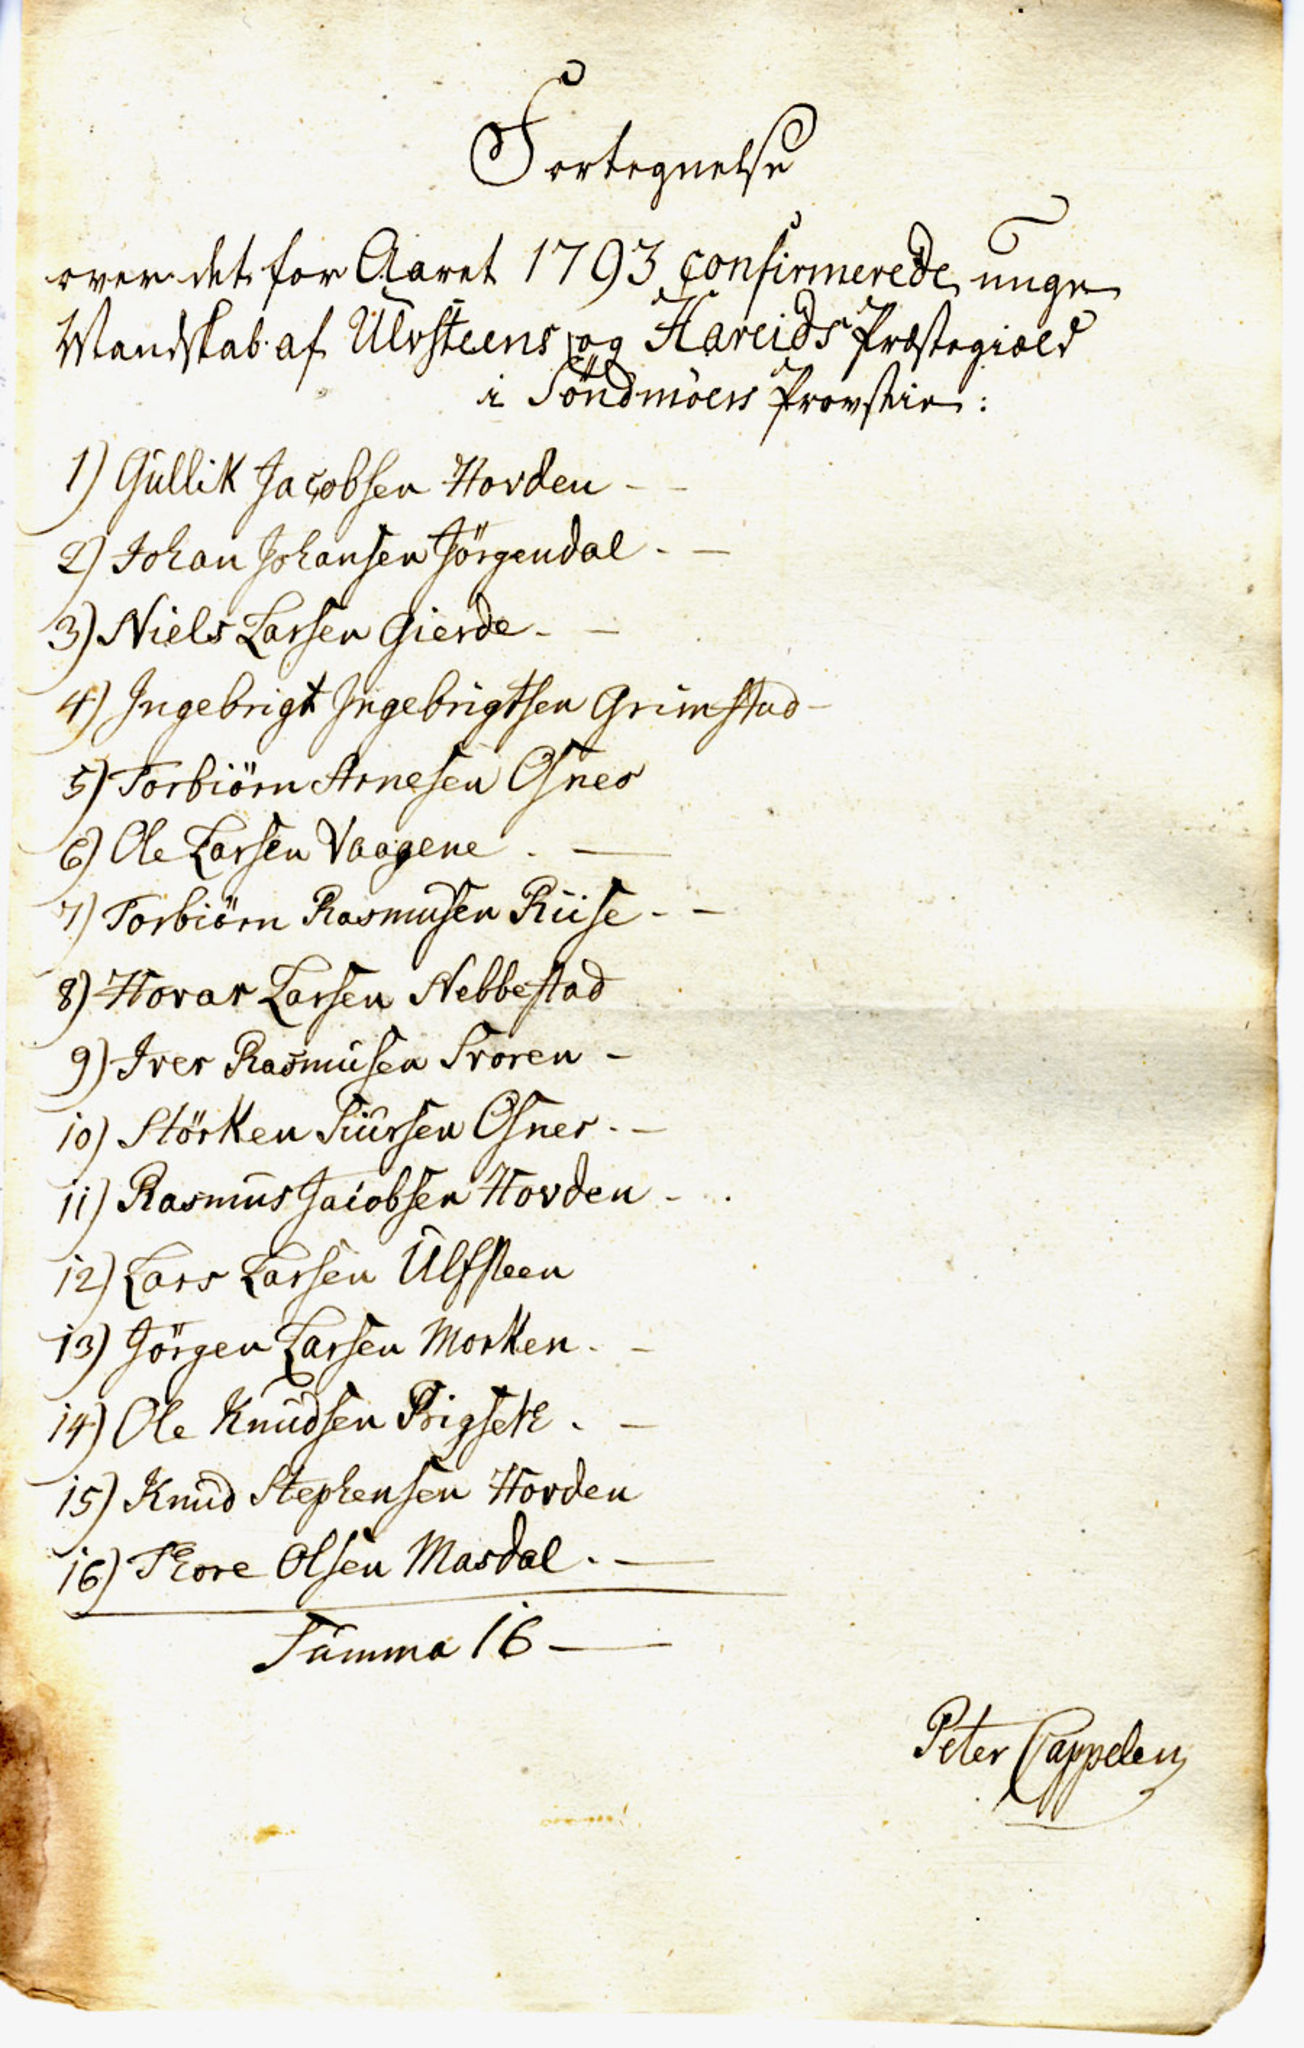 Fortegnelse
over det for Aaret 1793 confirmerede unge
Mandskab af Ulvsteens og Hareids Præstegield
i Söndmöers Provstie:
1) Gullik Jacobsen Hovden - -
2) Johan Johansen Jörgendal - -
3) Niels Larsen Gierde - -
4) Ingebrigt Ingebrigtsen Grimstad -
5) Torbiörn Arnesen Osnes
6) Ole Larsen Vaagene . -
7) Torbiörn Rasmusen Riise - -
8) Hovar Larsen Nebbestad
9) Iver Rasmusen Svoren -
10) Störken Siursen Osnes . -
11) Rasmus Jacobsen Hovden - .
12) Lars Larsen Ulfsteen
13) Jörgen Larsen Morken . -
14) Ole Knudsen . -
15) Knud Stephensen Hovden
16) Thore Olsen Masdal . -
Summa 16 -
Peter Cappelen